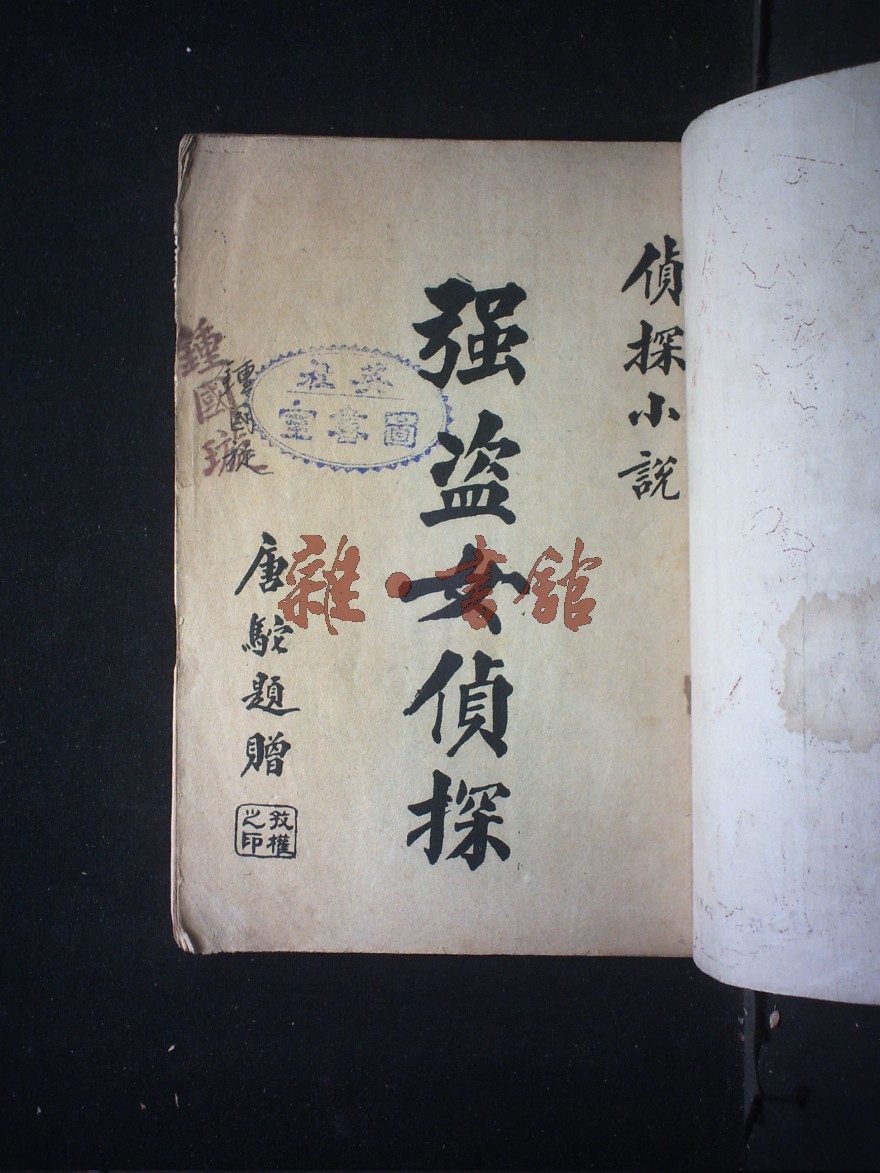 偵探小說
强盗女偵探
唐駝題贈
孜權之印
圖書室
鍾國璇
鍾國璇
雜·書館